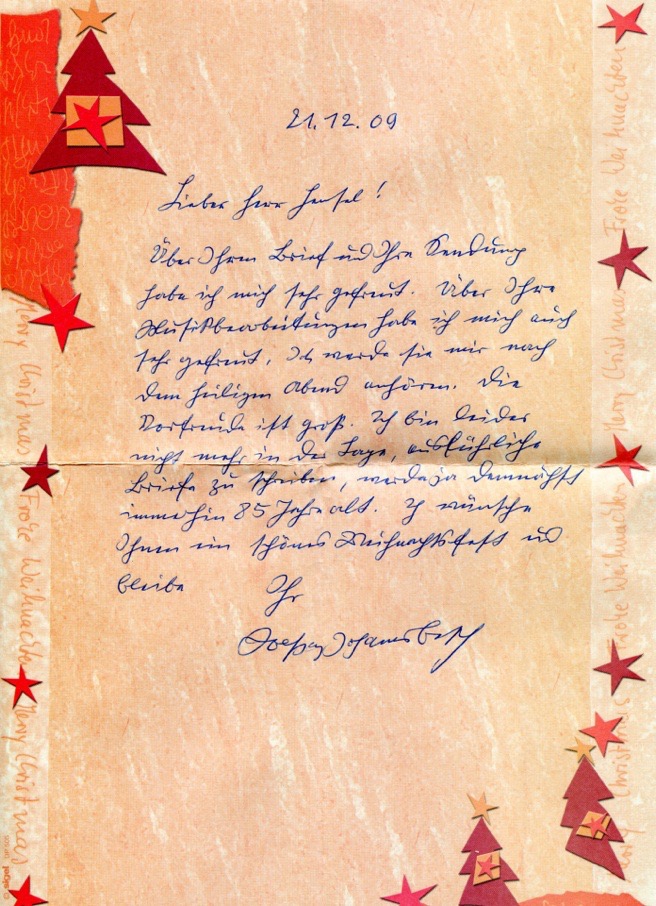 21.12.09
Lieber Herr Hensel!
Über Ihren Brief und Ihre Sendung
habe ich mich sehr gefreut. Über Ihre
Musikbearbeitungen habe ich mich auch
sehr gefreut, Ich werde sie mir nach
dem heiligen Abend anhören. Die
Vorfreude ist groß. Ich bin leider
nicht mehr in der Lage, ausführliche
Briefe zu schreiben, werde ja demnächst
immerhin 85 Jahre alt. Ich wünsche
Ihnen ein schönes Weihnachtsfest und
bleibe Ihr
Merry Christmas
Frohe Weihnachten
Merry Christmas
Frohe Weihnachten
Merry Christmas
Frohe Weihnachten
Merry Christmas
sigel